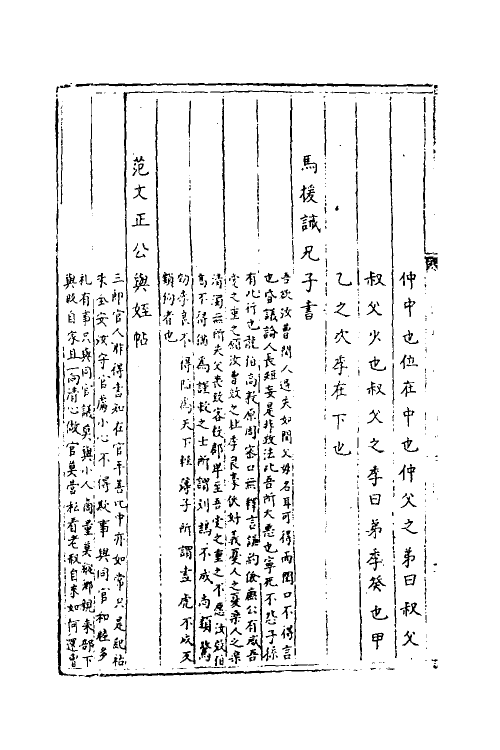 仲中也位在中也仲父之弟曰叔父
叔父少也叔父之季曰弟季癸也甲
乙之次季在下也
馬援誡兄子書
吾欲汝曹聞人過失如聞父母名耳可得而聞口不得言
也好議論人長短妄是非政法此吾所大惡也寧死不願子孫
有此行也龍伯高敦厚周密口無擇言謙約儉廉公有威吾
愛之重之願汝曹效之杜季良豪俠好義憂人之憂樂人之樂
清濁無所失父喪致客數郡畢至吾愛之重之不願汝效伯
高不得猶為謹敕之士所謂刻鵠不成尚類鶩
効季良不得陷為天下輕薄子所謂畫虎不成反
類狗者也
范文正公與姪帖
三郎官人昨得書知在官平善此中亦如常只是純祐
未全安汝守官處小心不得欺事與同官和睦多
禮有事只與同官議莫與小人商量莫縱鄉親來部下
興販自家且一向清心做官莫營私看老叔自來如何還曾